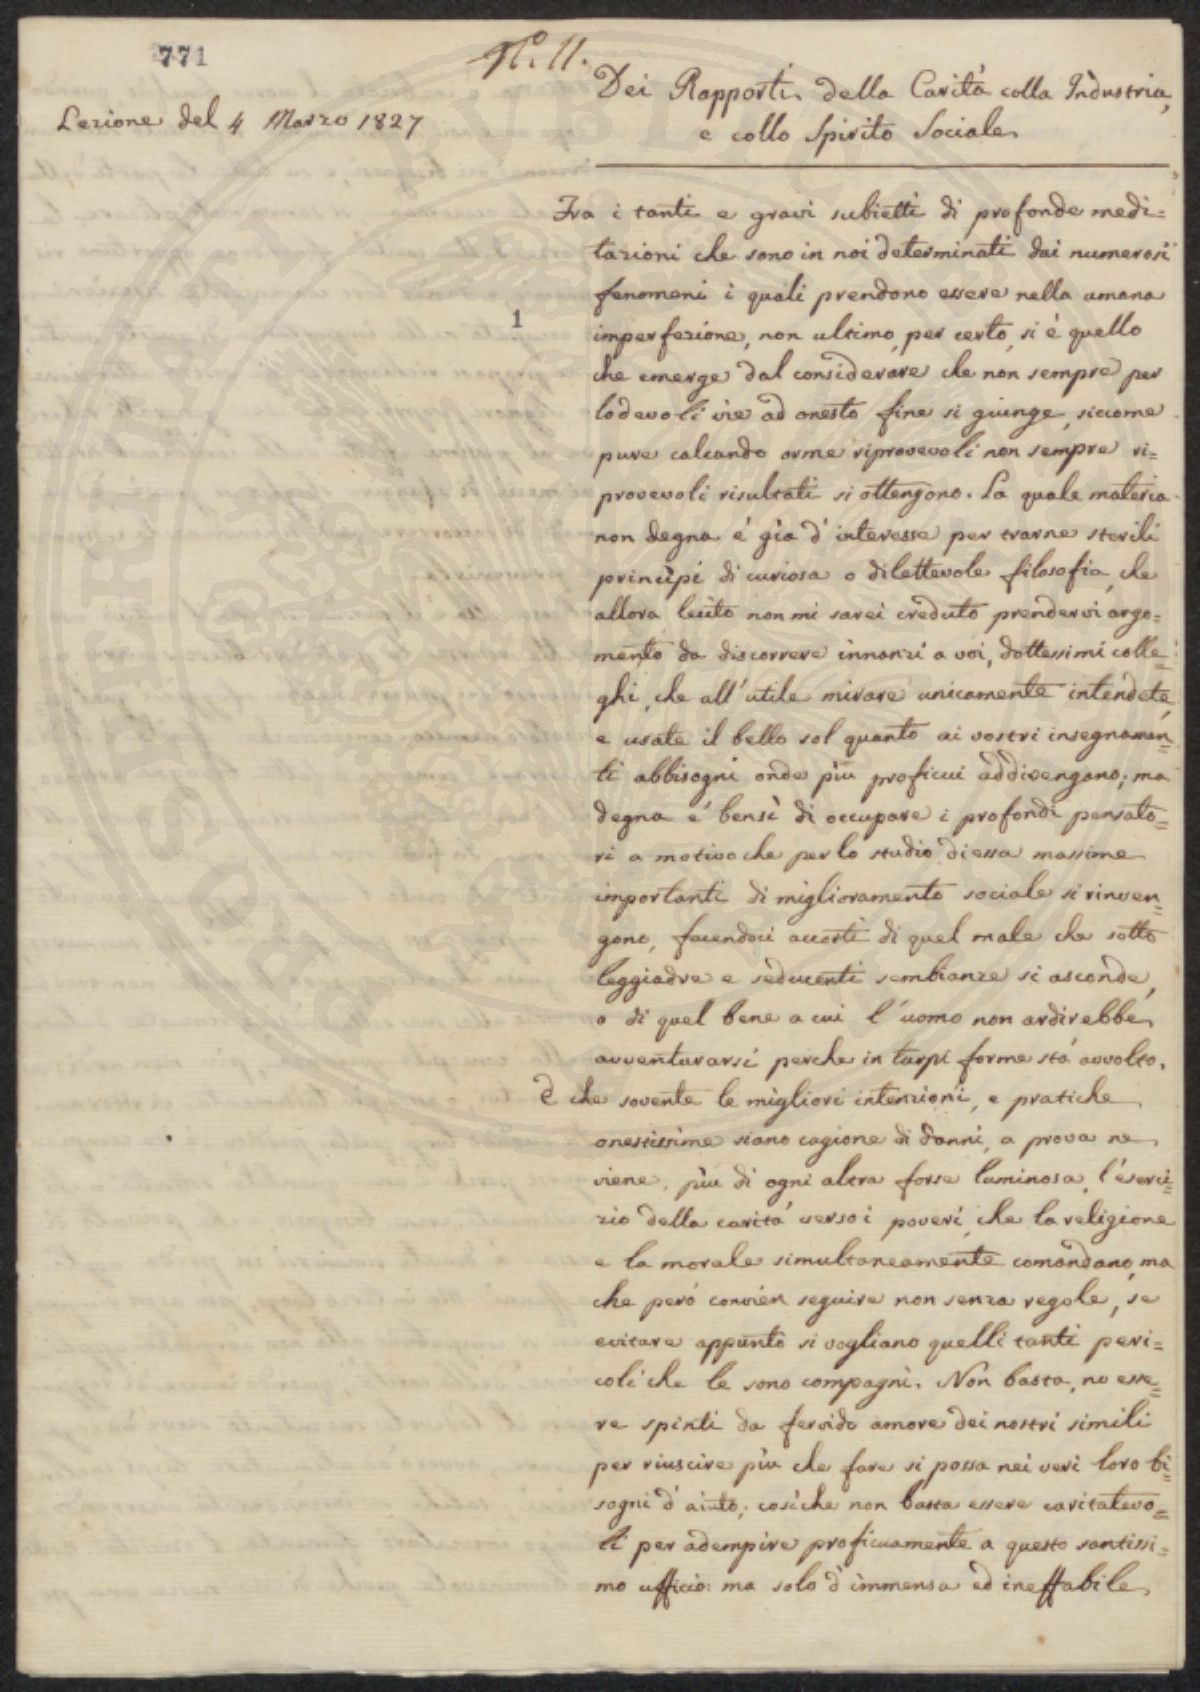 771
N.º 11.
Dei Rapporti della Carità colla Industria,
e collo Spirito Sociale
Lezione del 4 Marzo 1827
Fra i tanti e gravi subietti di profonde medi=
tazioni che sono in noi determinati dai numerosi
fenomeni i quali prendono essere nella umana
1
imperfezione, non ultimo, per certo, si è quello
che emerge dal considerare che non sempre per
lodevoli vie ad onesto fine si giunge, siccome
pure calcando orme riprovevoli non sempre ri=
provevoli risultati si ottengono. La quale materia
non degna è già d'interesse per trarne sterili
principi di curiosa o dilettevole filosofia, che
allora lecito non mi sarei creduto prendervi argo=
mento da discorrere innanzi a voi, dottissimi colle=
ghi, che all'utile mirare unicamente intendete,
e usate il bello sol quanto ai vostri insegnamen=
ti abbisogni onde più proficui addivengano; ma
degna è bensì di occupare i profondi pensato=
ri a motivo che per lo studio di essa massime
importanti di miglioramento sociale si rinven=
gono, facendoci accorti di quel male che sotto
leggiadre e seducenti sembianze si asconde,
o di quel bene a cui l'uomo non ardirebbe
avventurarsi perche in turpi forme stà avvolto.
E che sovente le migliori intenzioni, e pratiche
onestissime siano cagione di danni, a prova ne
viene, più di ogni altra forse luminosa, l'eserci=
zio della carità verso i poveri, che la religione
e la morale simultaneamente comandano, ma
che però convien seguire non senza regole, se
evitare appunto si vogliano quelli tanti peri=
coli che le sono compagni. Non basta, no esse=
re spinti da fervido amore dei nostri simili
per riuscire più che fare si possa nei veri loro bi=
sogni d'aiuto; cosìche non basta essere caritatevo=
li per adempire proficuamente a questo santissi=
mo ufficio: ma solo d'immensa ed ineffabile